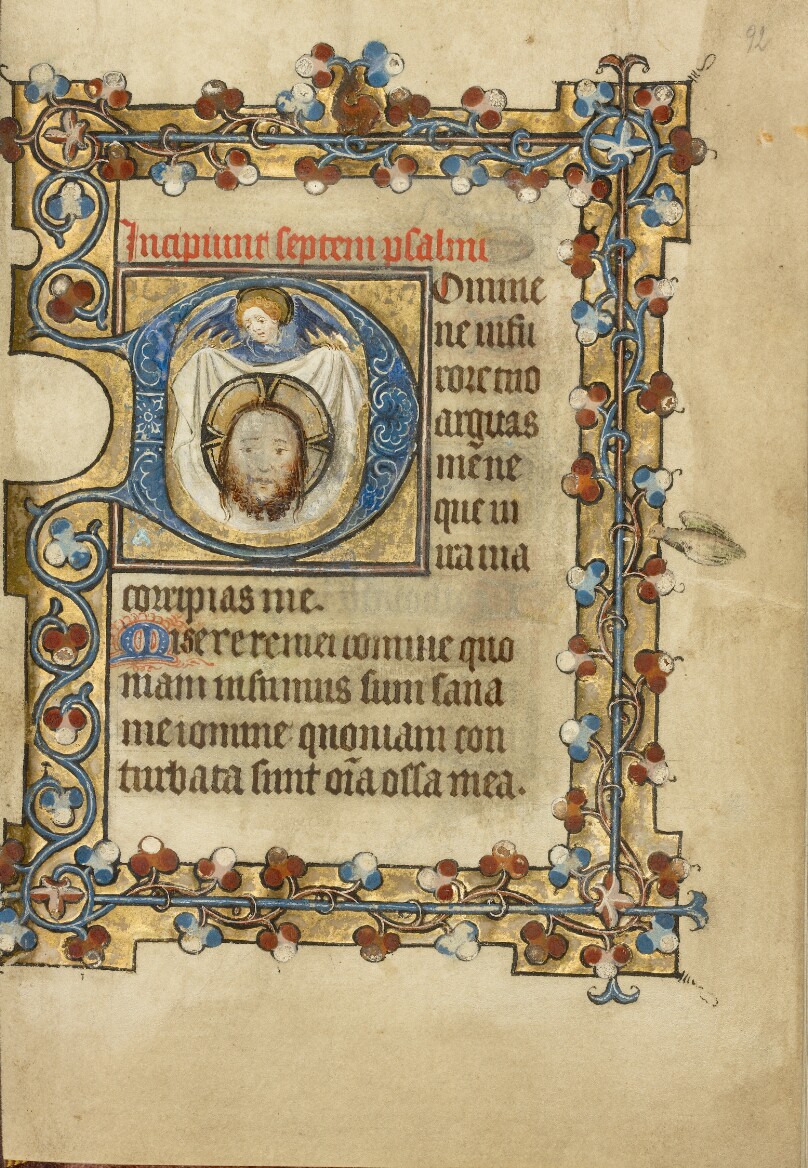 92
Incipiunt septem psalmi
Domine
ne in fu
rore tuo
arguas
me ne
que in
ira tua
corripias me.
Miserere mei domine quo
niam infirmus sum sana
me domine quoniam con
turbata sunt oīa ossa mea.